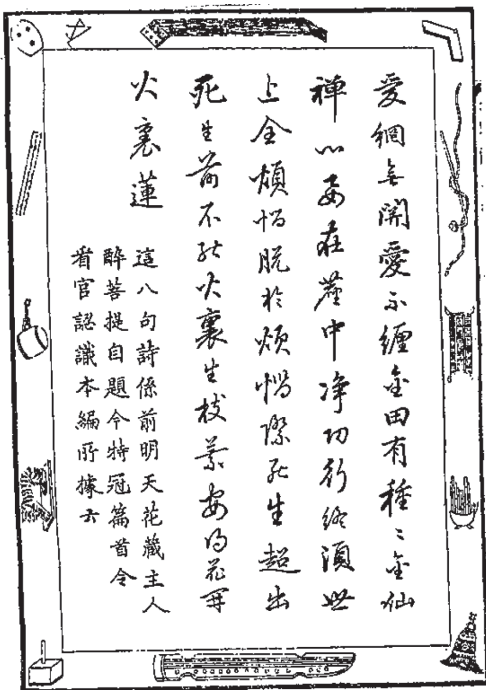 愛網無關愛不纏金田有種〻金仙
禪心要在塵中淨功行終須世
上全煩惱脫於煩惱際死生超出
死生前不能火裏生枝葉安得花開
火裏蓮
這八句詩係前明天花藏主人
醉菩提自題今特冠篇首令
看官認識本編所據云